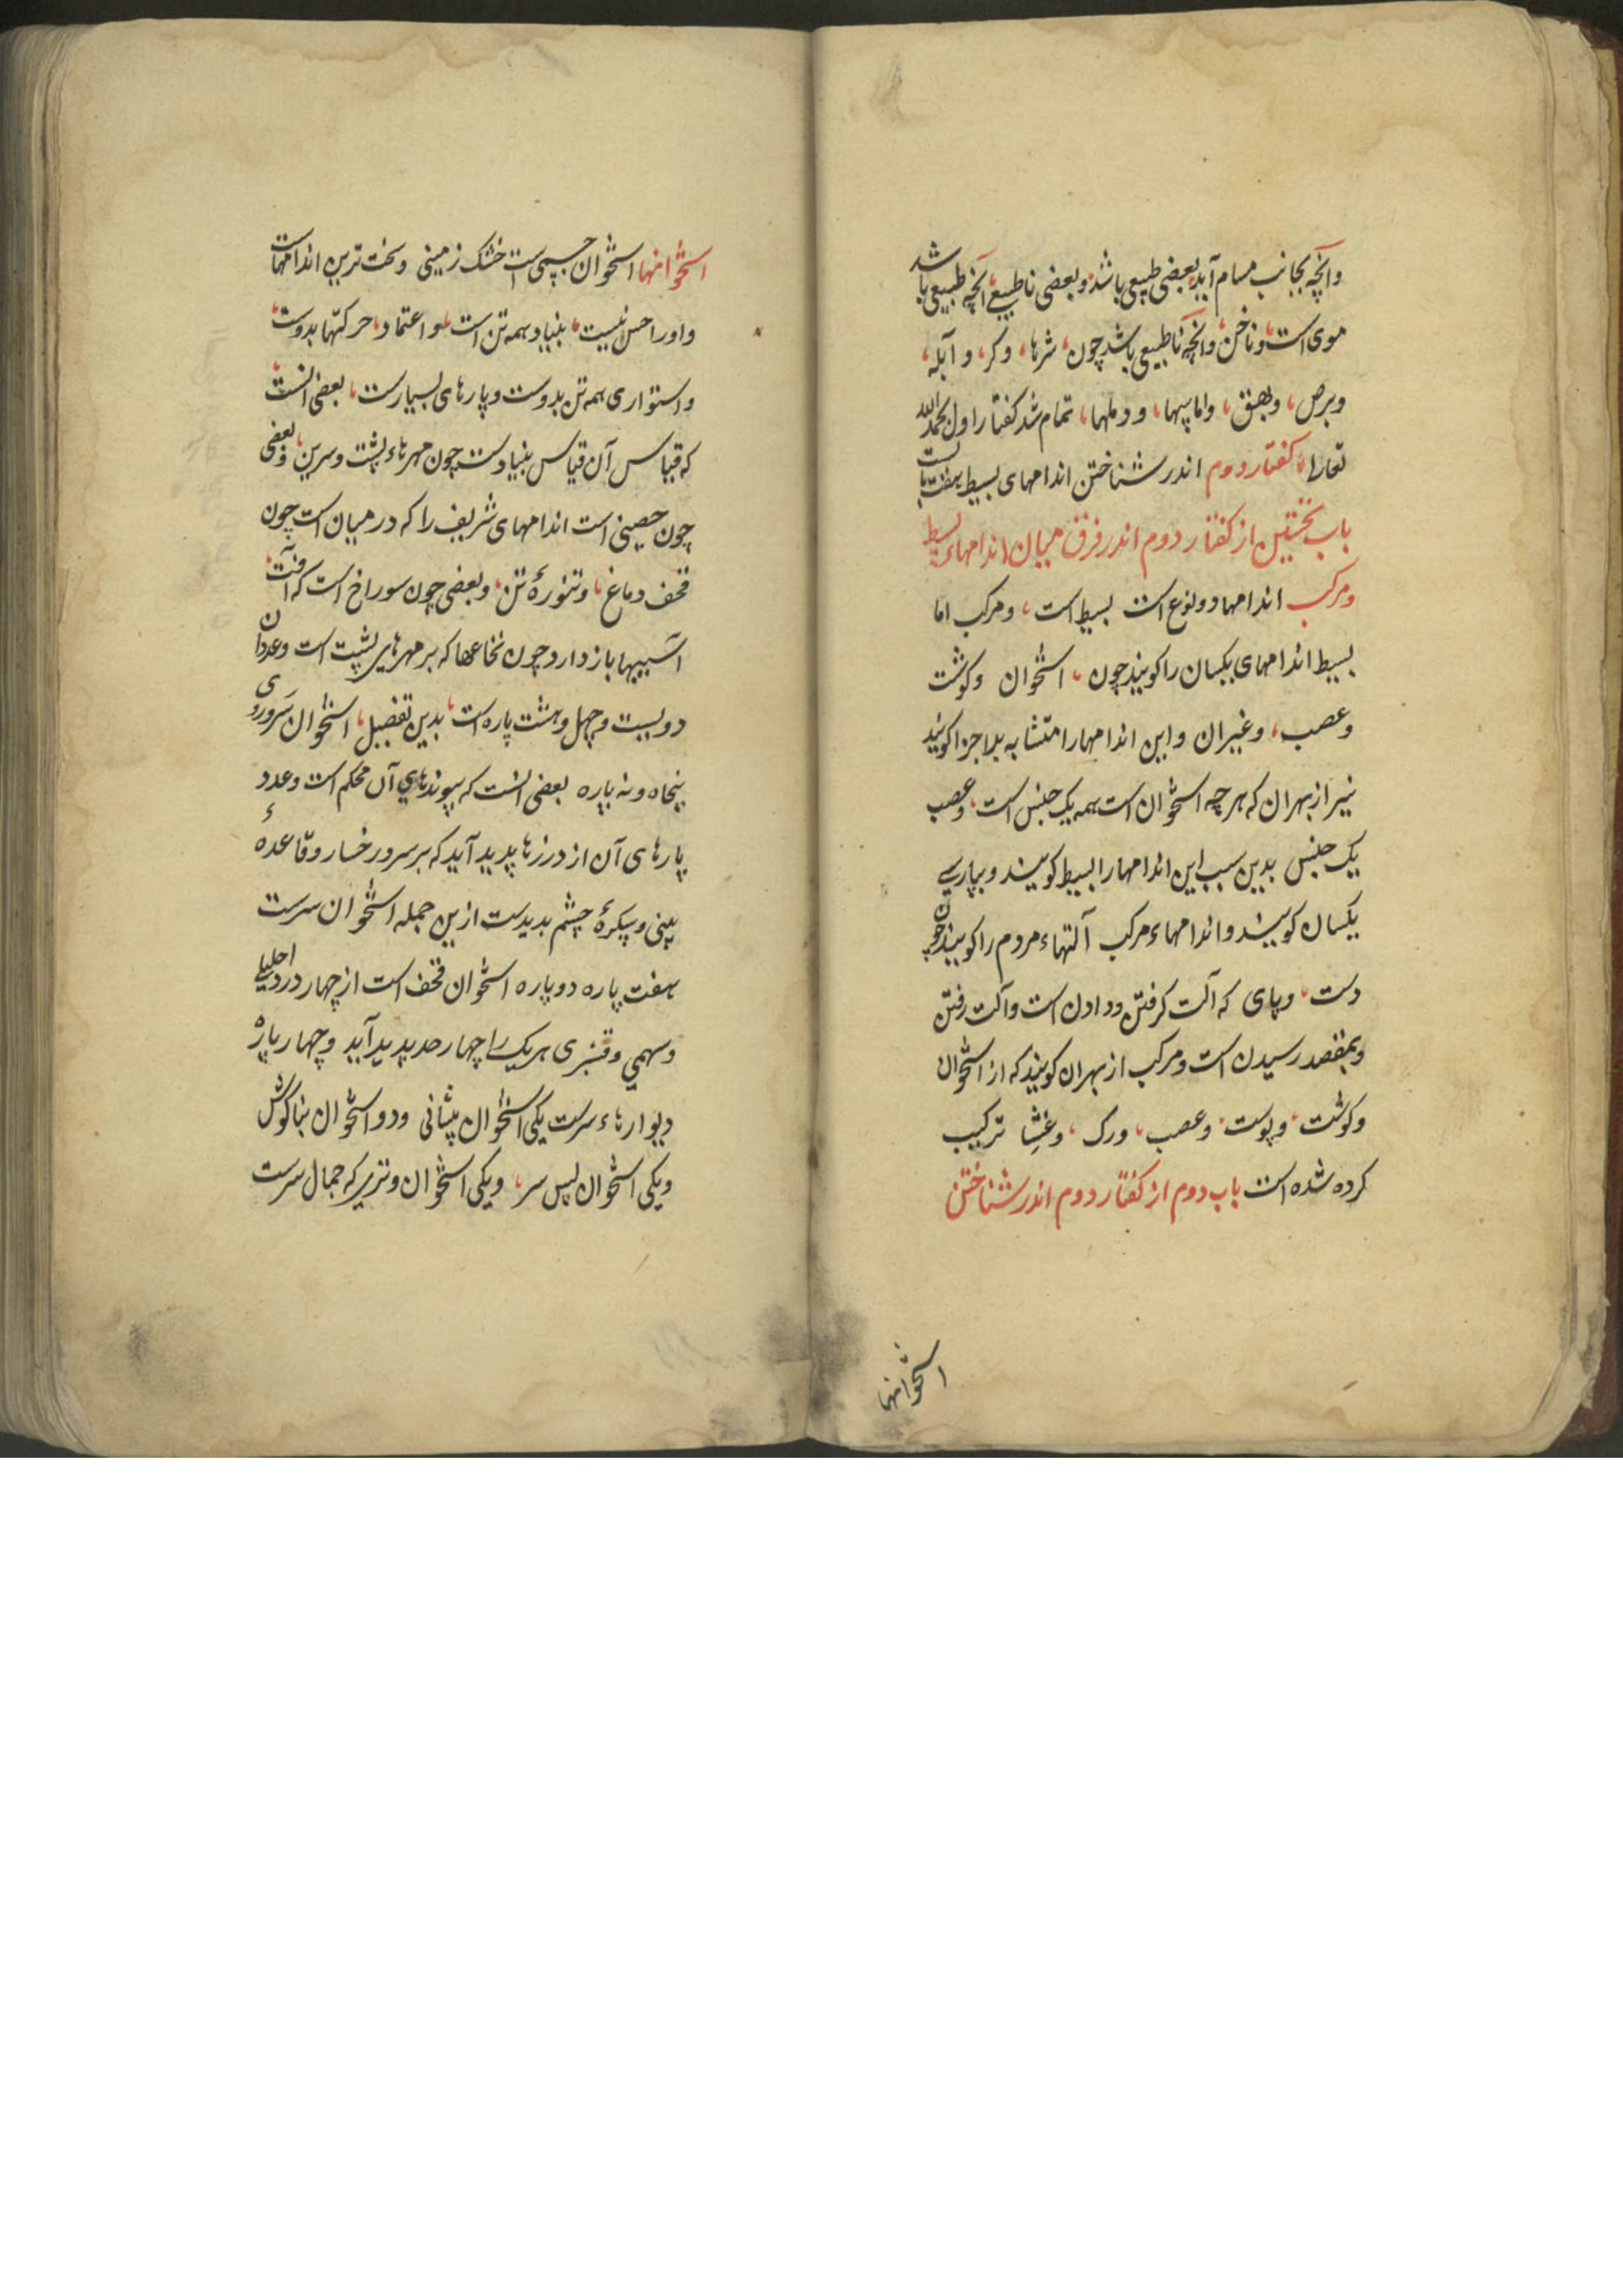 وانچه بجانب مسام آید بعضی طبیعی باشد وبعضی ناطبیعی انچه طبیعی باشد
موی است وناخن وانچه ناطبیعی باشد چون شرها، وکر، و آبله،
وبرص، وبهق، واماسها، ودملها، تمام شد کفتار اول بحمدالله
تعالی کفتار دوم اندر شناختن اندامهای بسیط هفت بابست
باب نخستین از کفتار دوم اندر فرق میان اندامهاء بسیط
ومرکب اندامها دو نوع است بسیط است، ومرکب اما
بسیط اندامهای یکسان را کویند چون، استخوان وکوشت
وعصب، وغیران واین اندامها را متشابه بلاجزا کویند
نیز از بهر ان که هر چه استخوان است همه یک جنس است، وعصب
یک جنس بدین سبب این اندامها را بسیط کویند وبپارسی
یکسان کویند واندامهاء مرکب آلتهاء مردم را کویند چون
دست، وپای که آلت کرفتن ودادن است وآلت رفتن
وبمقصد رسیدن است ومرکب از بهر ان کویند که از استخوان
وکوشت، وپوست، وعصب، ورک، وغشا ترکیب
کرده شده است باب دوم از کفتار دوم اندر شناختن
استخوانها
استخوانها استخوان جسمی است خشک زمینی وسخت ترین اندامهاست
واورا حس نیست، بنیاد همه تن است، واعتماد، حرکتها بدوست
واستواری همه تن بدوست وپارهای بسیارست، بعضی انست
که قیاس آن قیاس بنیادست چون مهرهاء پشت وسرین، وبعضی
چون حصینی است اندامهای شریف را که در میان است چون
قحف دماغ، وتنورهٔ تن، وبعضی چون سوراخ است که آفت
آسیبها باز دارد چون نخاعها که بر مهرهای پشت است وعددان
دویست وچهل وهشت پاره است، بدین تفصیل، استخوان سر وروی
پنجاه ونه پاره بعضی انست که پیوندهای آن محکم است وعدد
پارهای آن از درزها پدید آید که بر سر ورخسار وقاعدهٔ
بینی وپیکرهٔ چشم پدیدست ازین جمله استخوان سرست
هفت پاره دو پاره استخوان قحف است از چهار درد
وسهمی وقشری هر یک را چهار حد پدید آید وچهار پاره
دیوارهاء سرست یکی استخوان پیشانی ودو استخوان بناکوش
ویکی استخوان پس سر، ویکی استخوان وتری که جمال سرست